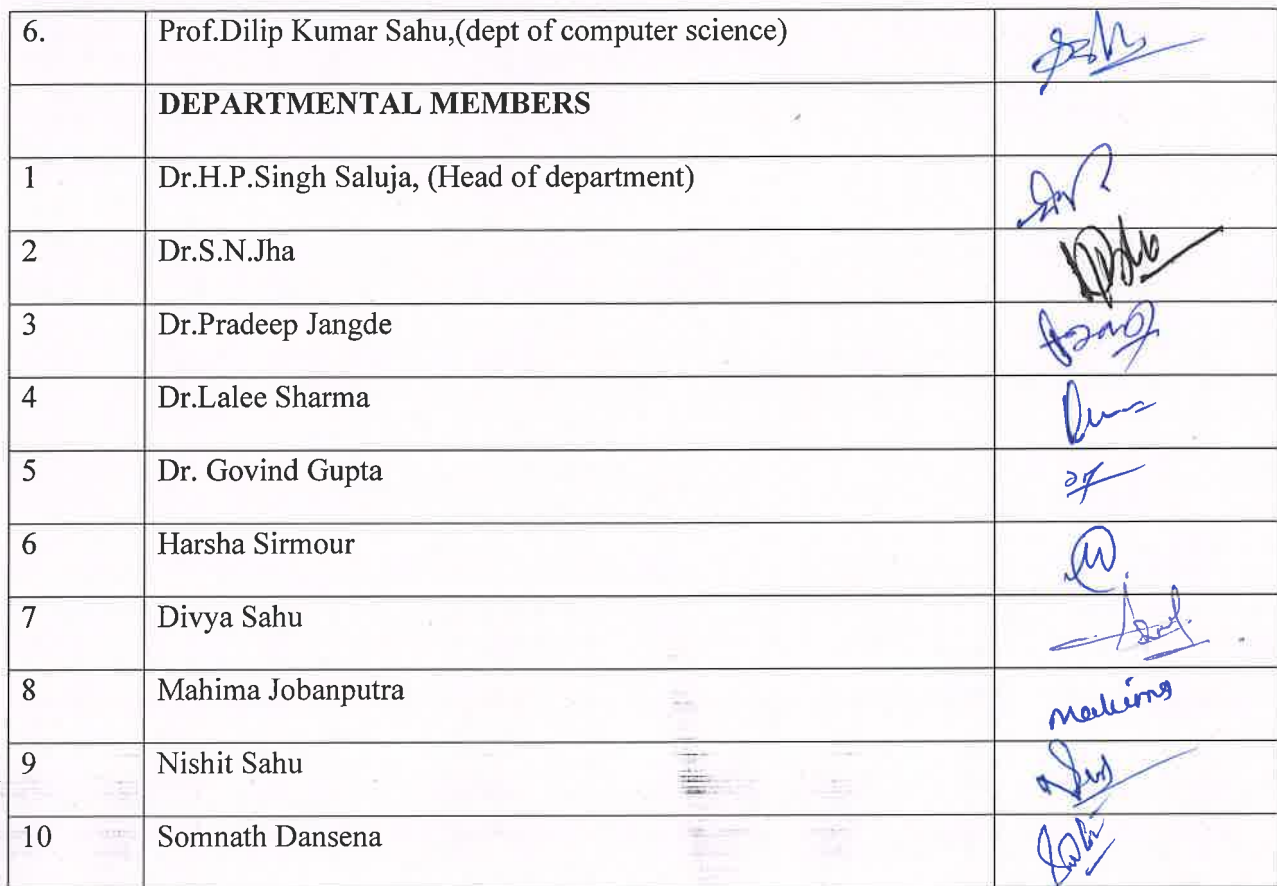 6. Prof.Dilip Kumar Sahu,(dept of computer science)
DEPARTMENTAL MEMBERS
1 Dr.H.P.Singh Saluja, (Head of department)
2 Dr.S.N.Jha
3 Dr.Pradeep Jangde
4 Dr.Lalee Sharma
5 Dr. Govind Gupta
6 Harsha Sirmour
7 Divya Sahu
8 Mahima Jobanputra Mahima
9 Nishit Sahu
10 Somnath Dansena